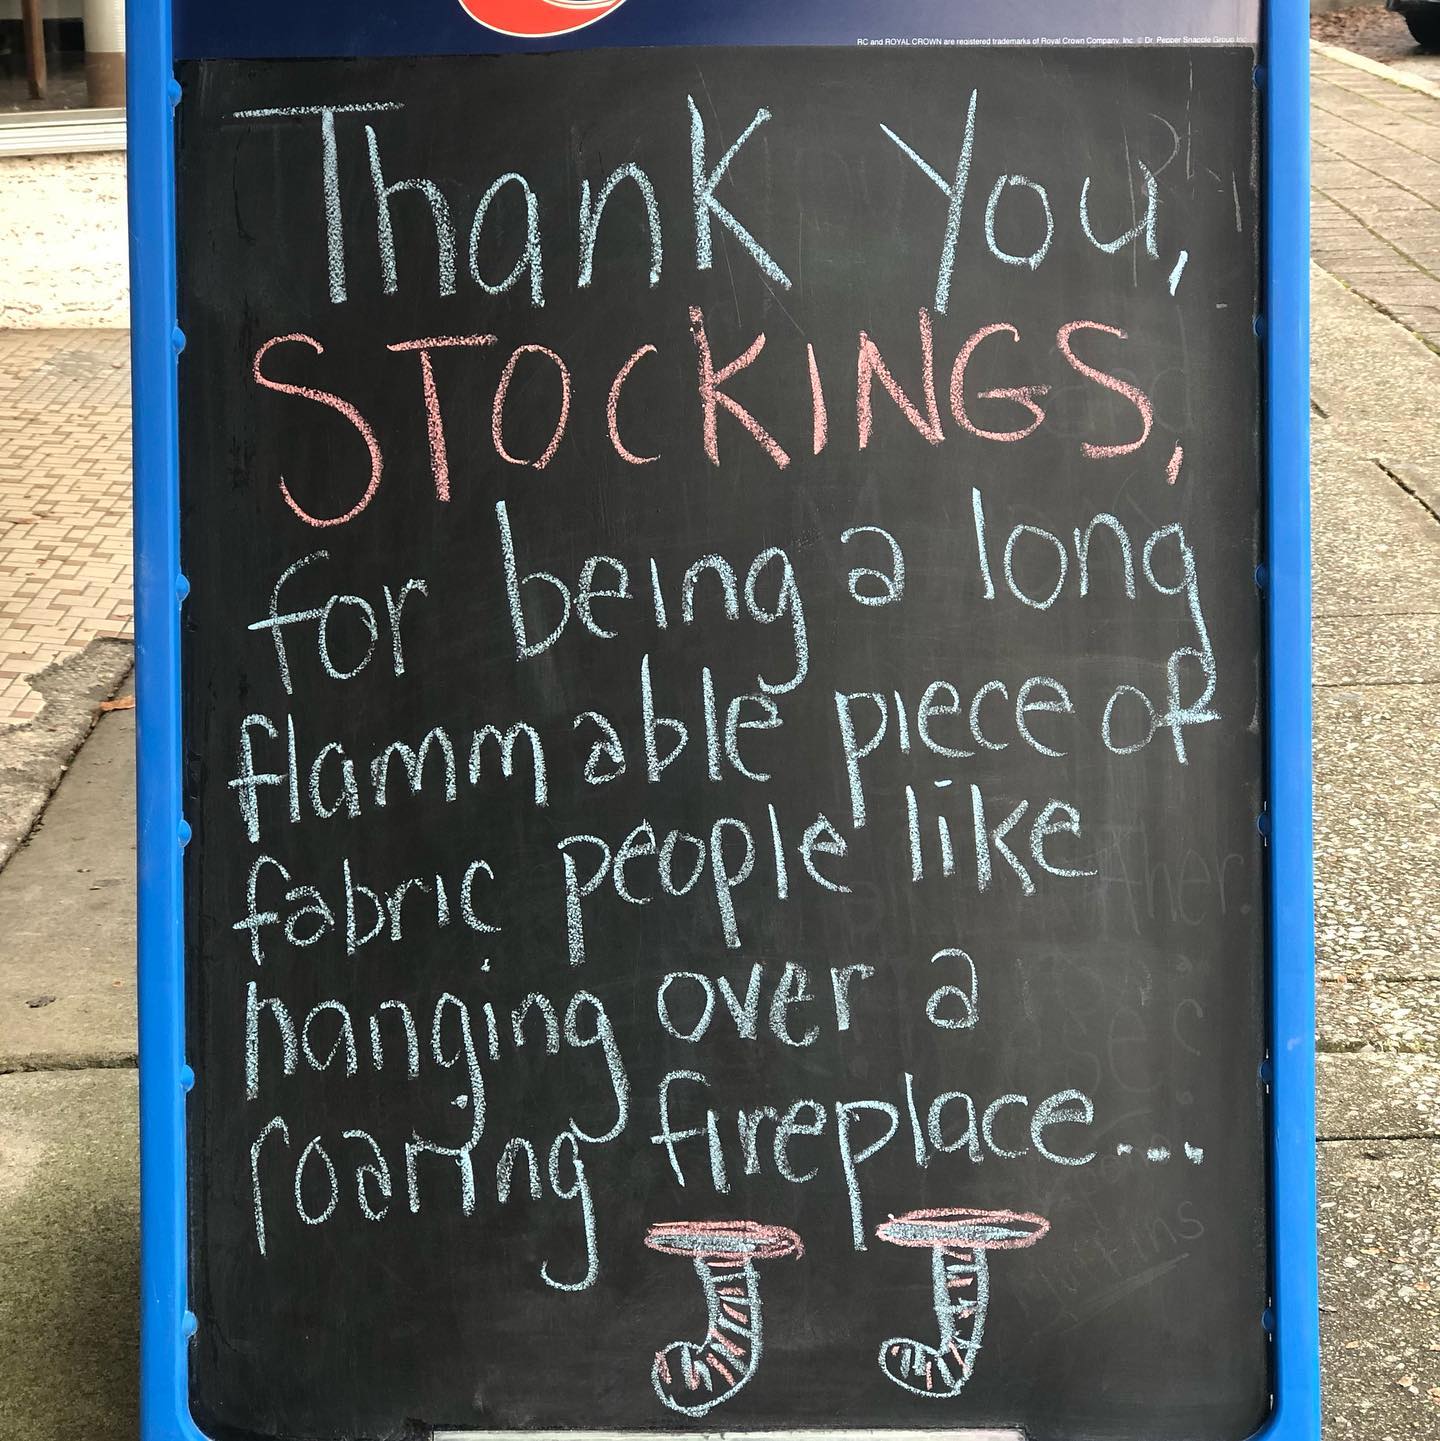 RC and ROYAL CROWN are registered trademarks of Royal Crown Company, Inc. © Dr. Pepper Snapple Group Inc.
Thank You,
STOCKINGS,
for being a long
flammable piece of
fabric people like
hanging over a
roaring fireplace...